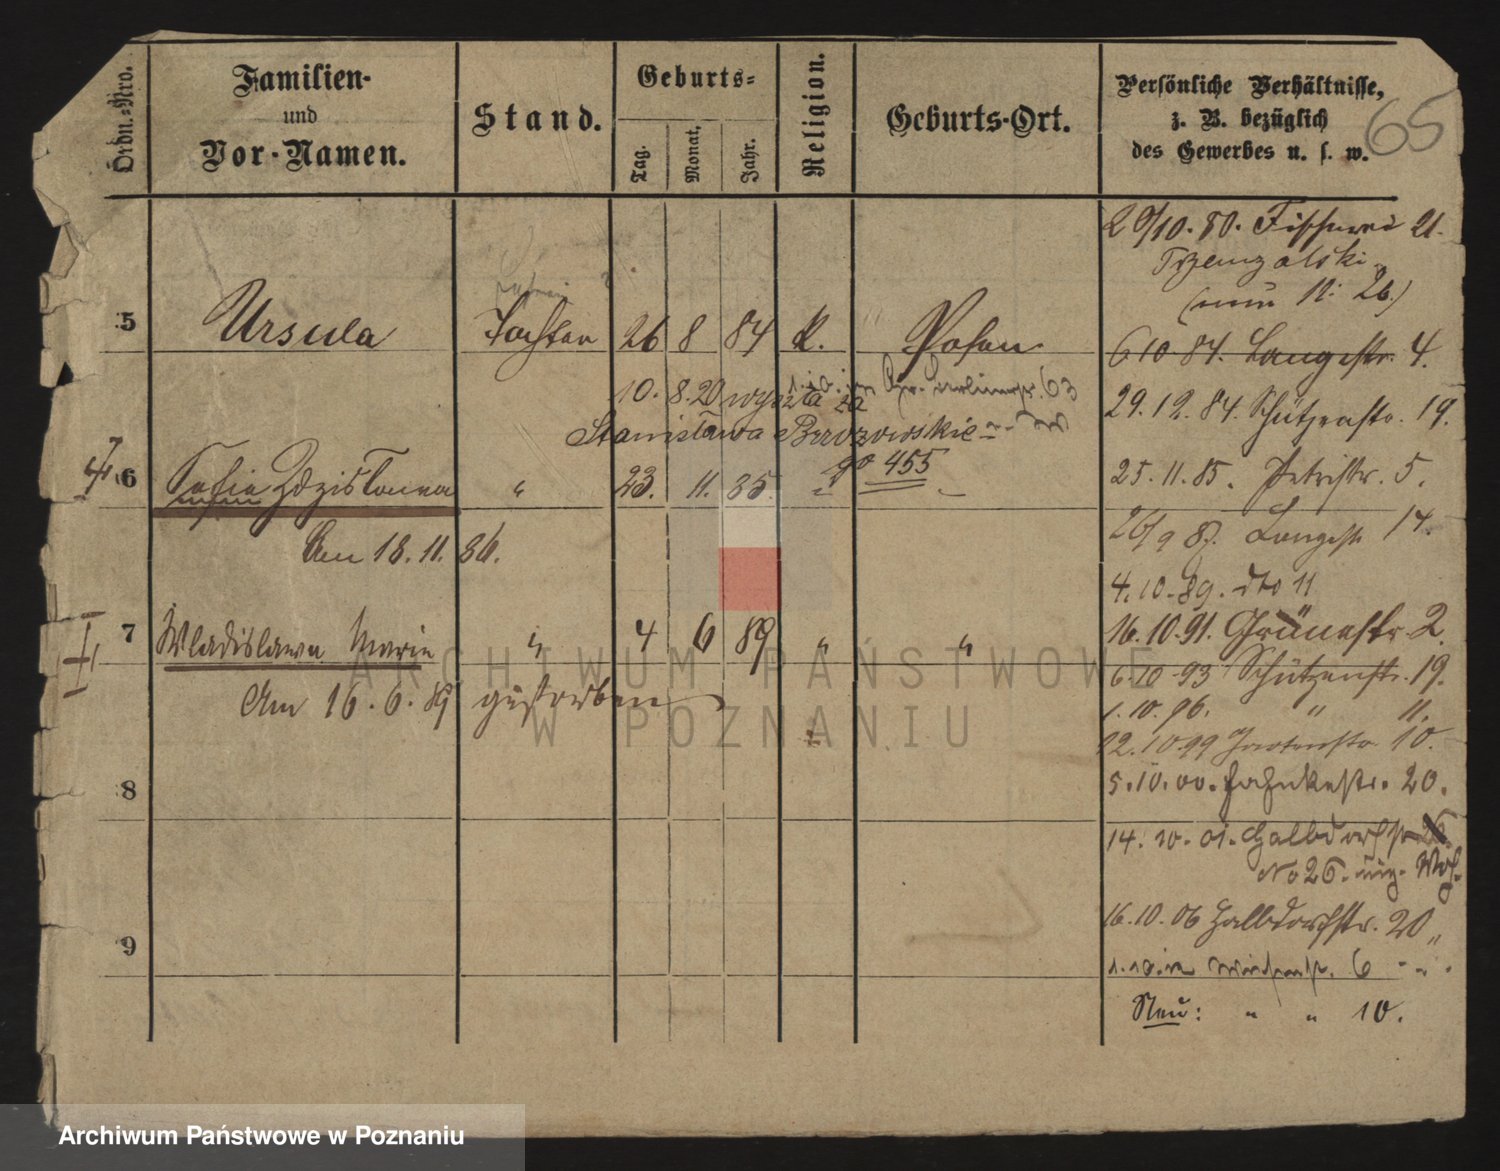 Ordn.-Nro.
Familien-
und
Vor-Namen.
Stand.
Geburts-
Tag.
Monat.
Jahr.
Religion.
Geburts-Ort.
Persönliche Verhältnisse,
z. B. bezüglich
des Gewerbes u. s. w.
65
20/10. 80. Fischerei 21.
Trzemzalski
(nun N: 26.)
5 Ursula Tochter 26 8 84 k. Posen
6 10 84. Langestr. 4.
10. 8. 20 wyszła za
63
Stanisława Brzozowskie
29. 12. 84. Schützenstr. 19.
go 455
6 Sofia Zdzisława " 23. 11. 85. " "
25. 11. 85. Petristr. 5.
Am 18. 11. 86.
26/9 87. Langestr. 14.
4. 10. 89. dto 11
7 Wladislawa Marie " 4 6 89 " "
16. 10. 91. Grünestr. 2.
6. 10 93 Schützenstr. 19.
Am 16. 6. 89 gestorben
1. 10. 96. " 11.
22. 10 99 Gartenstr. 10.
8
5. 10. 00. 20.
14. 10. 01. Halbdorfstr.
No 26.
9
16. 10. 06 Halbdorfstr. 20 "
1. 10. 6 " "
Neu: " " 10.
ARCHIWUM PAŃSTWOWE
W POZNANIU
Archiwum Państwowe w Poznaniu